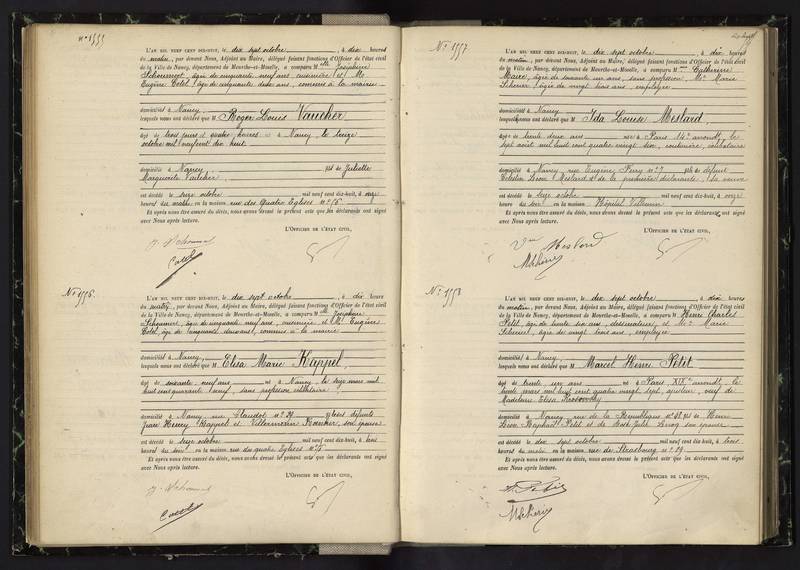 N° 1555
L'AN MIL NEUF CENT DIX-HUIT, le dix sept octobre, à dix heures
du matin, par devant Nous, Adjoint au Maire, délégué faisant fonctions d'Officier de l'état civil
de la Ville de Nancy, département de Meurthe-et-Moselle, a comparu M lle Joséphine
âgée de cinquante neuf ans, et M.
Eugène âgé de cinquante deux ans, commis à la mairie
domicilié à Nancy
lesquels nous ont déclaré que M Roger Louis Vaucher
âgé de trois jours et quatre heures né à Nancy, le treize
octobre mil neuf cent dix huit
domicilié à Nancy fils de Juliette
Marguerite Vaucher
est décédé le seize octobre mil neuf cent dix-huit, à onze
heures du matin en la maison rue des Quatre Eglises n°
Et après nous être assuré du décès, nous avons dressé le présent acte que les déclarants ont signé
avec Nous après lecture.
L'OFFICIER DE L'ÉTAT CIVIL,
N° 1556.
L'AN MIL NEUF CENT DIX-HUIT, le dix sept octobre, à dix heures
du matin, par devant Nous, Adjoint au Maire, délégué faisant fonctions d'Officier de l'état civil
de la Ville de Nancy, département de Meurthe-et-Moselle, a comparu M lle Joséphine
âgée de cinquante neuf ans, et M. Eugène
âgé de cinquante deux ans, commis à la mairie
domicilié à Nancy,
lesquels nous ont déclaré que M Elisa Marie Kappel,
âgé de soixante neuf ans né à Nancy, le seize mai mil
huit cent quarante neuf, sans profession, célibataire
domicilié à Nancy, rue Claudot n° 29 des défunts
Jean Henry Kappel et son épouse
est décédé le seize octobre mil neuf cent dix-huit, à trois
heures du soir en la maison rue des quatre Eglises n°
Et après nous être assuré du décès, nous avons dressé le présent acte que les déclarants ont signé
avec Nous après lecture.
L'OFFICIER DE L'ÉTAT CIVIL,
N° 1557.
L'AN MIL NEUF CENT DIX-HUIT, le dix sept octobre, à dix heures
du matin, par devant Nous, Adjoint au Maire, délégué faisant fonctions d'Officier de l'état civil
de la Ville de Nancy, département de Meurthe-et-Moselle, a comparu M me Catherine
âgée de soixante un ans, sans profession, M lle Marie
âgée de vingt trois ans, employée
domicilié à Nancy
lesquels nous ont déclaré que M Ida Louise Meslard,
âgée de trente deux ans née à Paris 14e arrondt, le
sept août mil huit cent quatre vingt six, couturière, célibataire
domicilié à Nancy rue Eugène Ferry n° 7 fille de défunt
Meslard et de la première déclarante, sa veuve
est décédé le seize octobre mil neuf cent dix-huit, à onze
heures du soir en la maison Hôpital Villemin
Et après nous être assuré du décès, nous avons dressé le présent acte que les déclarants ont signé
avec Nous après lecture.
L'OFFICIER DE L'ÉTAT CIVIL,
Vve Meslard
N° 1558
L'AN MIL NEUF CENT DIX-HUIT, le dix sept octobre, à dix heures
du matin, par devant Nous, Adjoint au Maire, délégué faisant fonctions d'Officier de l'état civil
de la Ville de Nancy, département de Meurthe-et-Moselle, a comparu M Henri Charles
Petit, âgé de trente six ans, dessinateur, et M lle Marie
âgée de vingt trois ans, employée
domicilié à Nancy,
lesquels nous ont déclaré que M Marcel Henri Petit
âgé de trente un ans né à Paris XIXe arrondt, le
trente mars mil huit cent quatre vingt sept, veuf de
Madeleine Elisa
domicilié à Nancy rue de la République n° 48 fils de Henri
Petit et de son épouse
est décédé le dix sept octobre mil neuf cent dix-huit, à trois
heures du matin en la maison rue de Strasbourg n° 29
Et après nous être assuré du décès, nous avons dressé le présent acte que les déclarants ont signé
avec Nous après lecture.
L'OFFICIER DE L'ÉTAT CIVIL,